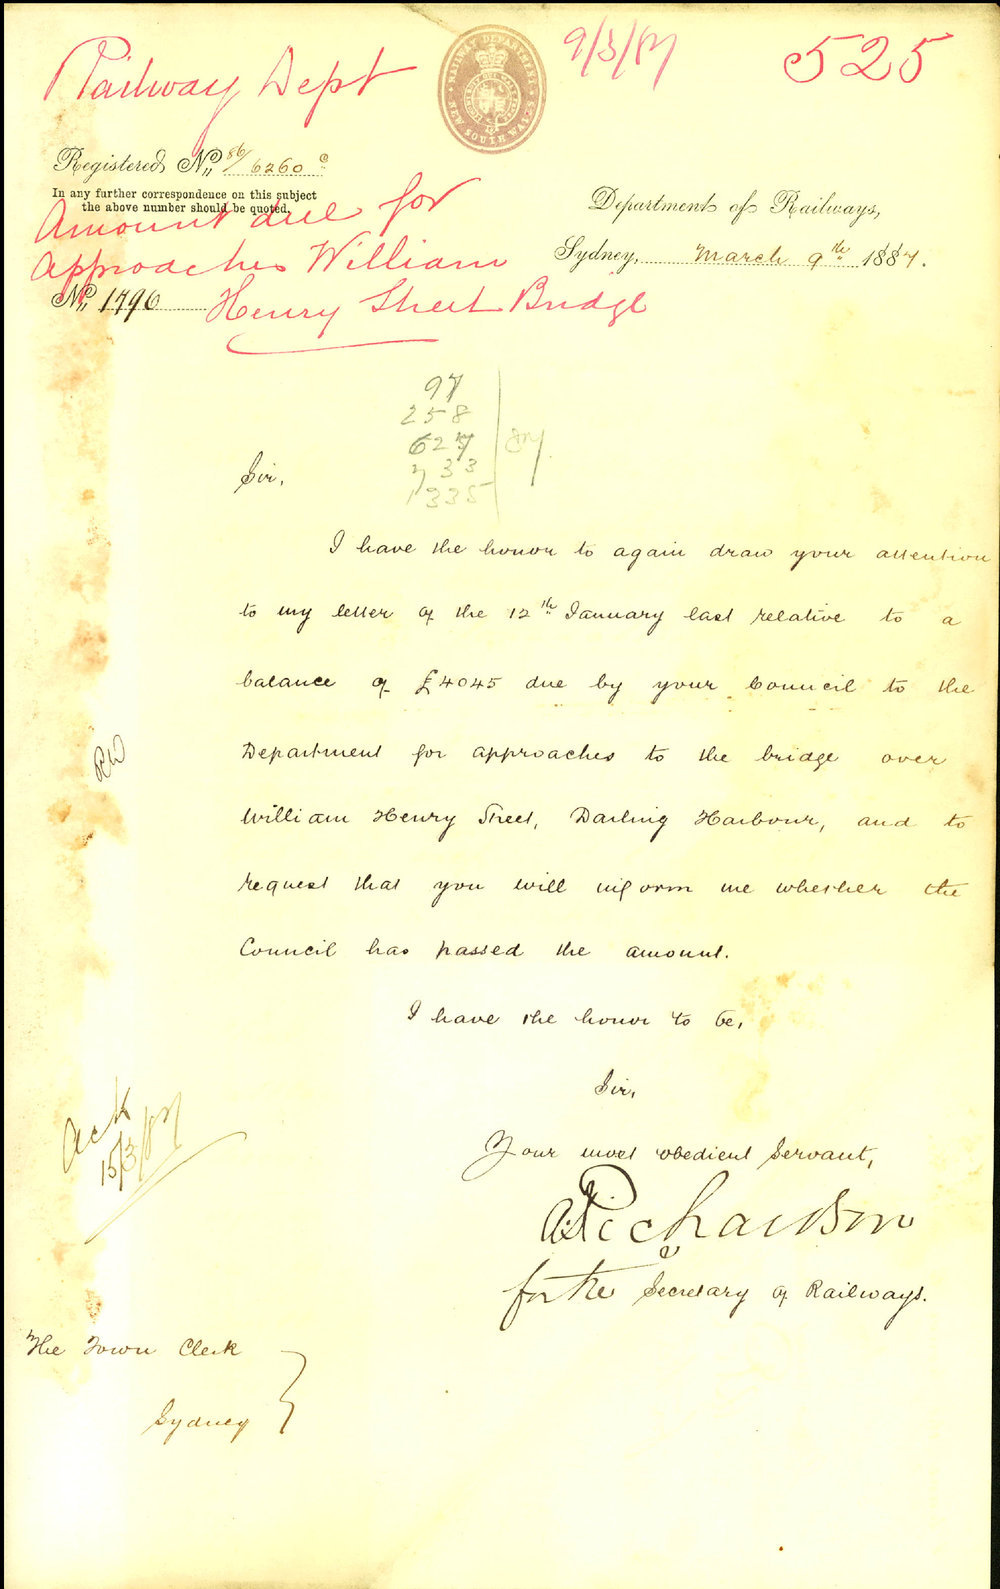 Railway Dept
9/3/87
525
NEW SOUTH WALES RAILWAY DEPARTMENT
Registered No. 86/6260 c
In any further correspondence on this subject
the above number should be quoted.
Amount due for
approaches William
Henry Street Bridge
Department of Railways,
Sydney, March 9th 1887.
No. 1796
97
258
627
733
1335
87
Sir,
I have the honor to again draw your attention
to my letter of the 12th January last relative to a
balance of £4045 due by your Council to the
Department for approaches to the bridge over
William Henry Street, Darling Harbour, and to
request that you will inform me whether the
Council has passed the amount.
I have the honor to be,
Sir,
Your most obedient Servant,
A. Richardson
for the Secretary of Railways.
RW
Ack
15/3/87
The Town Clerk
Sydney